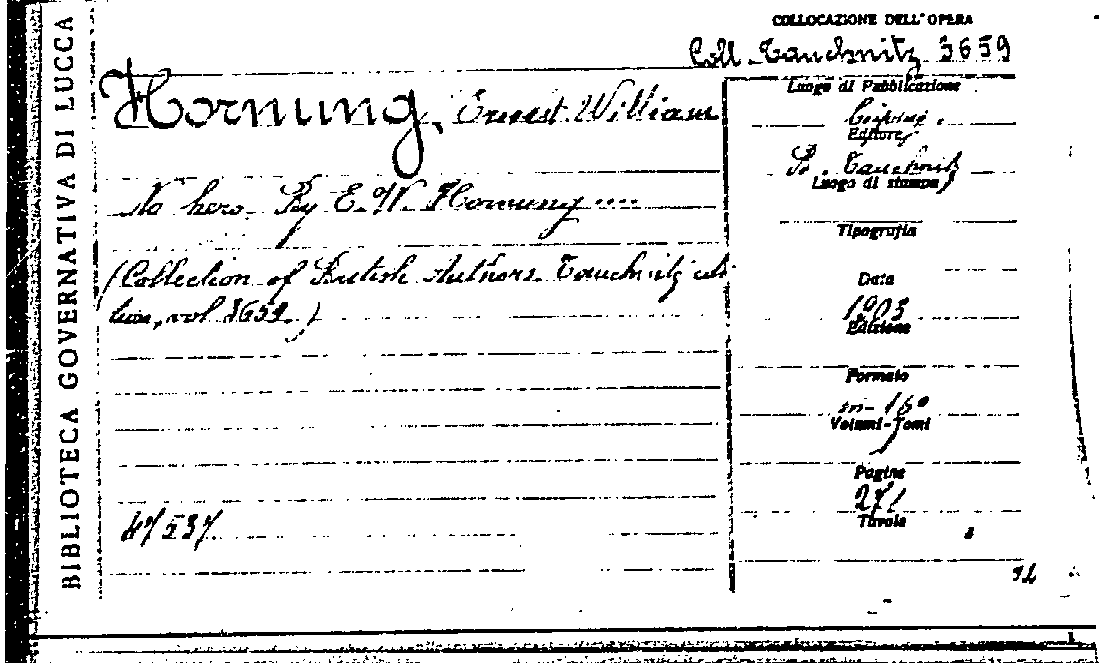 BIBLIOTECA GOVERNATIVA DI LUCCA
COLLOCAZIONE DELL'OPERA
Coll. Tauchnitz 3659
Hornung, Ernest William
No hero. By E. W. Hornung ....
(Collection of British Authors. Tauchnitz edi
tion, vol 3659.)
47537
Luogo di Pubblicazione
Leipzig.
Editore
B. Tauchnitz
Luogo di stampa
Tipografia
Data
1903
Edizione
Formato
in-16°
Volumi-Tomi
Pagine
271
Tavole